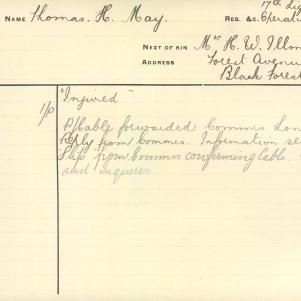 17th Lig
NAME Thomas. H. May. REG. &c. Operati
NEXT OF KIN Mr H. W. Illm
ADDRESS Forest Avenue
Black Forest
1/0 "Injured"
P/Cable forwarded Commes Lon
Reply from Commes. Information se
Slip from Commes confirming Cable.
sent inquirer